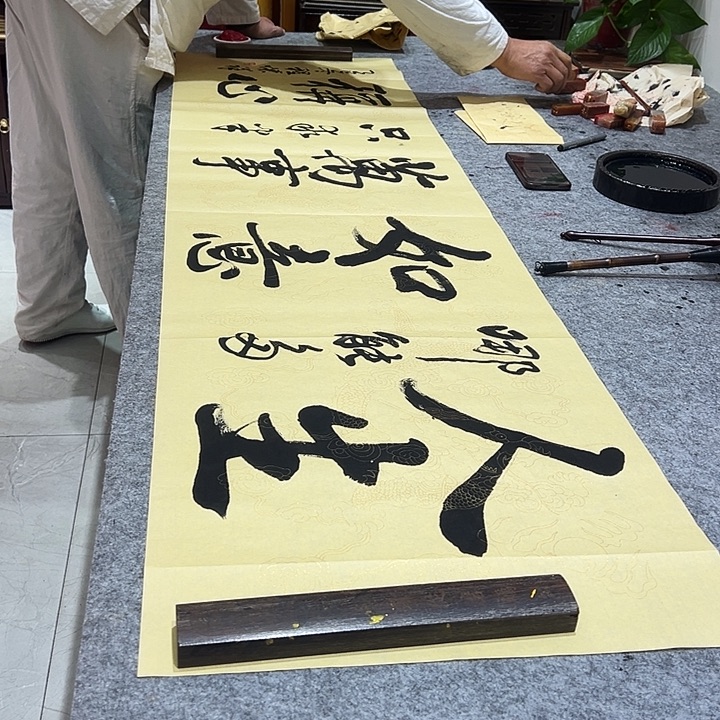 人生
哪能多
如意
萬事
只求半
稱心